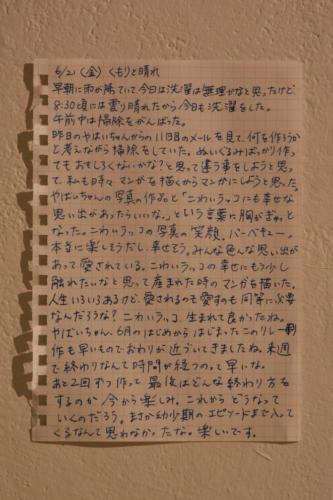 6/21（金）くもりと晴れ
早朝に雨が降ていて今日は洗濯は無理かなと思ったけど
8:30頃には曇り晴れたから今日も洗濯をした。
午前中は掃除をがんばった。
昨日のやばいちゃんからの11日目のメールを見て、何を作ろうか
と考えながら掃除をしていた。ぬいぐるみばっかり作っ
てもおもしろくないかな?と思って違う事をしようと思っ
て、私も時々マンガを描くからマンガにしようと思った。
やばいちゃんの写真の作品と「こわいラッコにも幸せな
思い出があったらいいな。」という言葉に胸がぎゅっと
なった。こわいラッコの写真の笑顔、バーベキュー。
本当に楽しそうだし、幸せそう。みんな色んな思い出が
あって愛されている。こわいラッコの幸せにもう少し
触れたいなと思って産まれた時のマンガを描いた。
人生いろいろあるけど、愛されるのも愛すのも同等に必要
なんだろうな? こわいラッコ、生まれて良かったね。
やばいちゃん、6月のはじめからはじまったこのリレー制
作も早いものでおわりが近づいてきましたね。来週
で終わりなんて時間が経つのって早いな。
あと2回ずつ作って最後はどんな終わり方を
するのか今から楽しみ。これからどうなって
いくのだろう。まさか幼少期のエピソードまで入って
くるなんて思わなかったな。楽しいです。